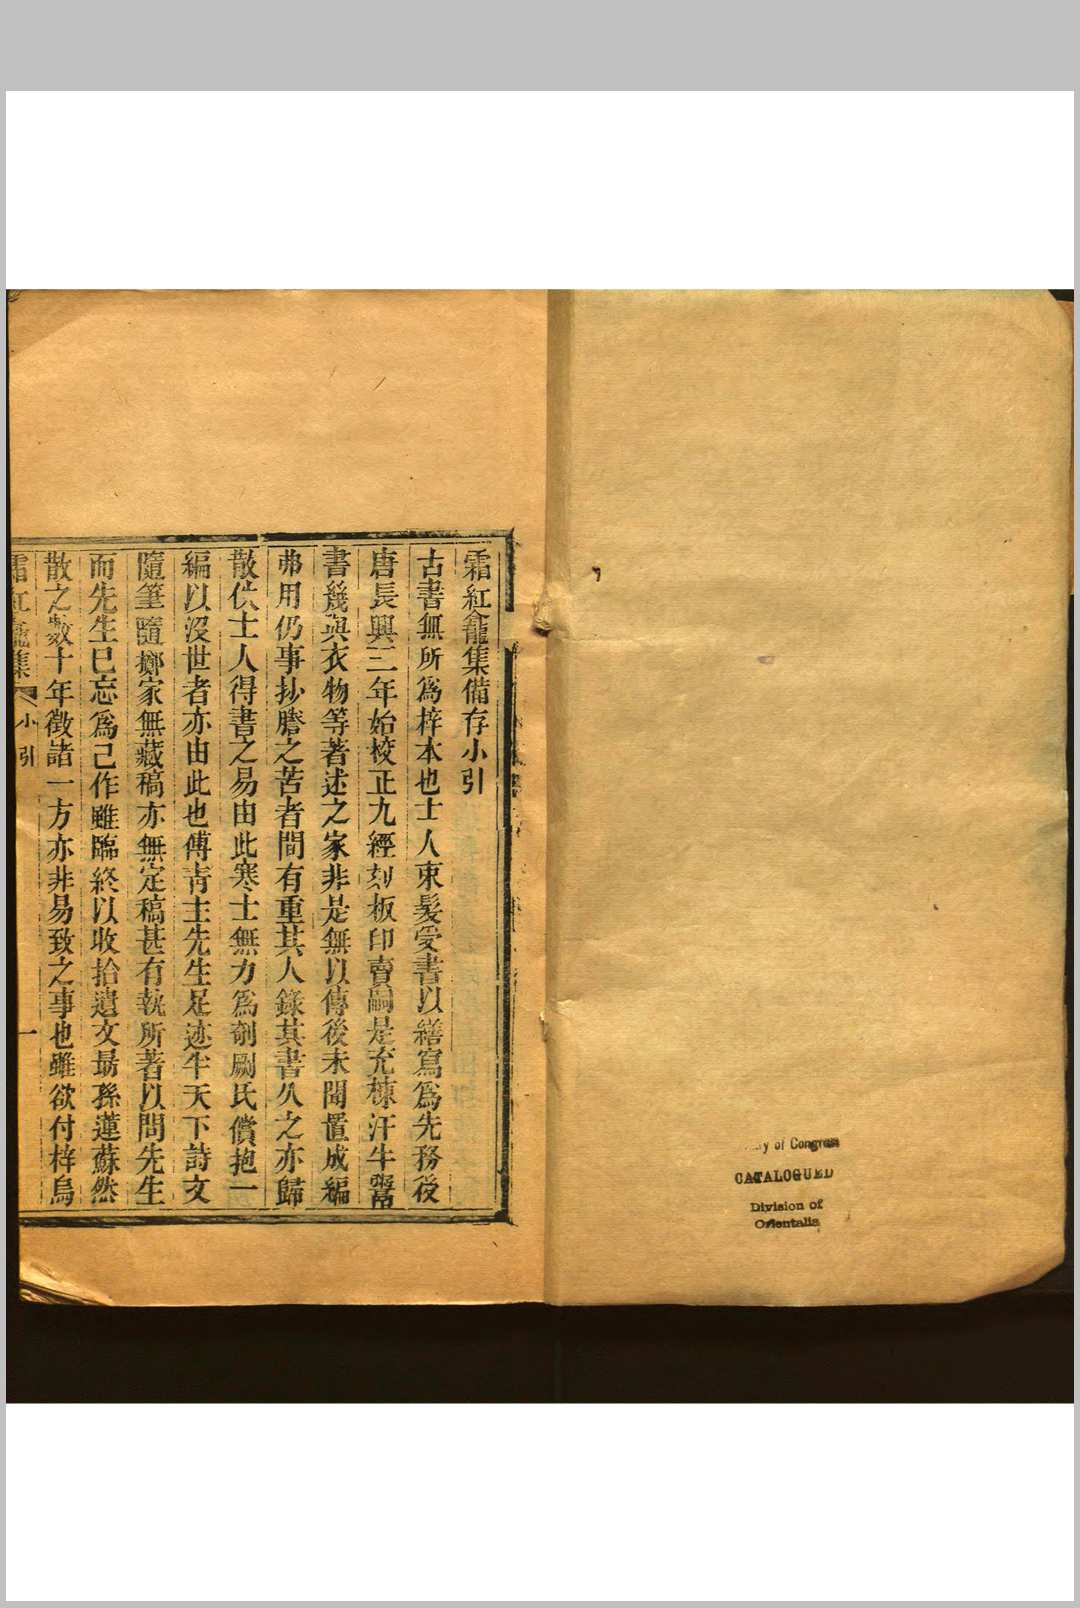 霜紅龕集備存小引
古書無所爲梓本也士人束髮受書以繕寫爲先務後
唐長興三年始校正九經刻板印賣嗣是充棟汗牛鬻
書幾與衣物等著述之家非是無以傳後未聞置成編
弗用仍事抄謄之苦者間有重其人錄其書久之亦歸
散佚士人得書之易由此寒士無力爲剞劂氏償抱一
編以沒世者亦由此也傅青主先生足迹半天下詩文
隨筆隨擲家無藏稿亦無定稿甚有執所著以問先生
而先生已忘爲己作雖臨終以收拾遺文勗孫蓮蘇然
散之數十年徵諸一方亦非易致之事也雖欲付梓烏
霜紅龕集 小引 一
ry of Congress
CATALOGUED
Division of
Orientalia